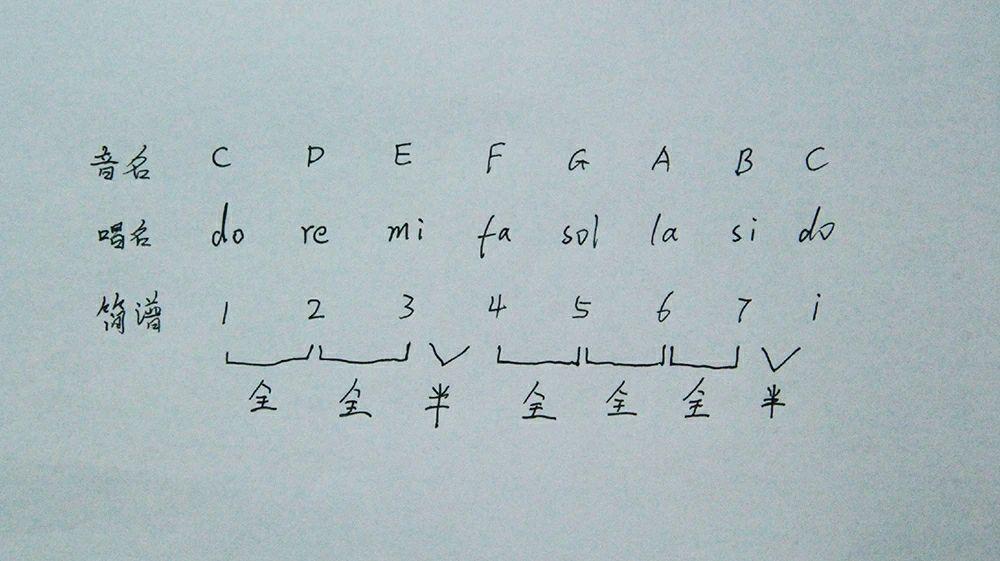 音名 C D E F G A B C
唱名 do re mi fa sol la si do
简谱 1 2 3 4 5 6 7 i
全 全 半 全 全 全 半